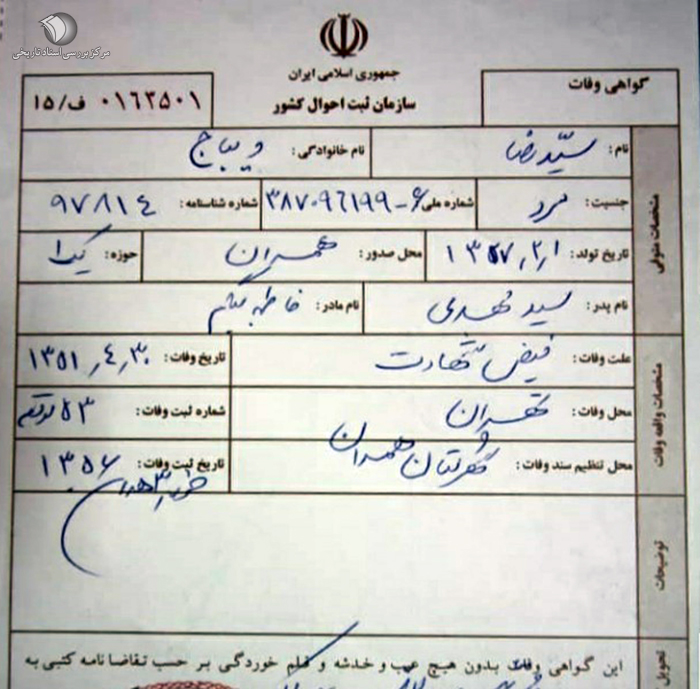 مرکز بررسی اسناد تاریخی
جمهوری اسلامی ایران
سازمان ثبت احوال کشور
گواهی وفات
۰۱۶۳۵۰۱ ف/۱۵
مشخصات متوفی
نام: سیّدرضا
نام خانوادگی: دیباج
جنسیت: مرد
شماره ملی: ۳۸۷۰۹۶۱۹۹-۶
شماره شناسنامه: ۹۷۸۱۴
تاریخ تولد:
محل صدور: همدان
حوزه: یک
نام پدر: سید مهدی
نام مادر: فاطمه بیگم
مشخصات واقعه وفات
علت وفات: فیض شهادت
تاریخ وفات: ۱۳۵۱٫۴٫۳۰
محل وفات: تهران
شماره ثبت وفات: ۵۳
محل تنظیم سند وفات: شهرستان همدان
تاریخ ثبت وفات: ۱۳۵۶
توضیحات
تحویل
این گواهی وفات بدون هیچ عیب و خدشه و قلم خوردگی بر حسب تقاضا نامه کتبی به